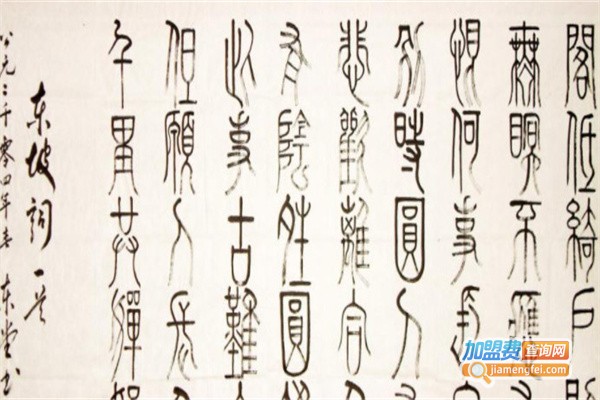 閣低綺戶
無眠不應有
恨何事長向
別時圓人有
悲歡離合
有陰晴圓缺
此事古難全
但願人長久
千里共嬋娟
东坡词一首
公元二千零四年春 东堂书
加盟费查询网
jiamengfei.com